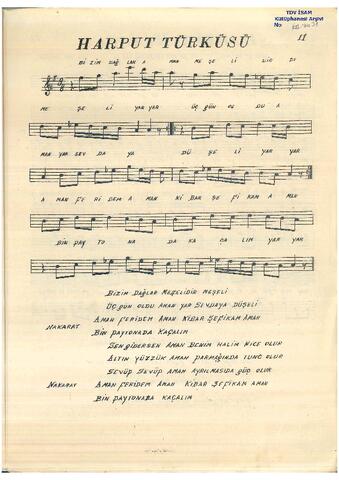 TDV İSAM
Kütüphanesi Arşivi
No
HARPUT TÜRKÜSÜ
11
Bİ ZİM DAĞ LAR A MAN ME ŞE Lİ DİR Dİ
ME ŞE Lİ YAR YAR ÜÇ GÜN OL DU A
MAN YAR SEV DA YA DÜ ŞE Lİ YAR YAR
A MAN FE Rİ DEM A MAN KİBAR ŞE FİKAM A MAN
BİN PAY TO NA DA KA ÇA LIM YAR YAR
BİZİM DAĞLAR MEŞELİDİR MEŞELİ
ÜÇ GÜN OLDU AMAN YAR SEVDAYA DÜŞELİ
NAKARAT AMAN FERİDEM AMAN KİBAR ŞEFİKAM AMAN
BİN PAYTONADA KAÇALIM
SEN GİDERSEN AMAN BENİM HALİM NİCE OLUR
ALTIN YÜZZÜK AMAN PARMAĞINDA TUNÇ OLUR
SEVÜP SEVÜP AMAN AYRILMASIDA GÜÇ OLUR
NAKARAT AMAN FERİDEM AMAN KİBAR ŞEFİKAM AMAN
BİN PAYTONADA KAÇALIM